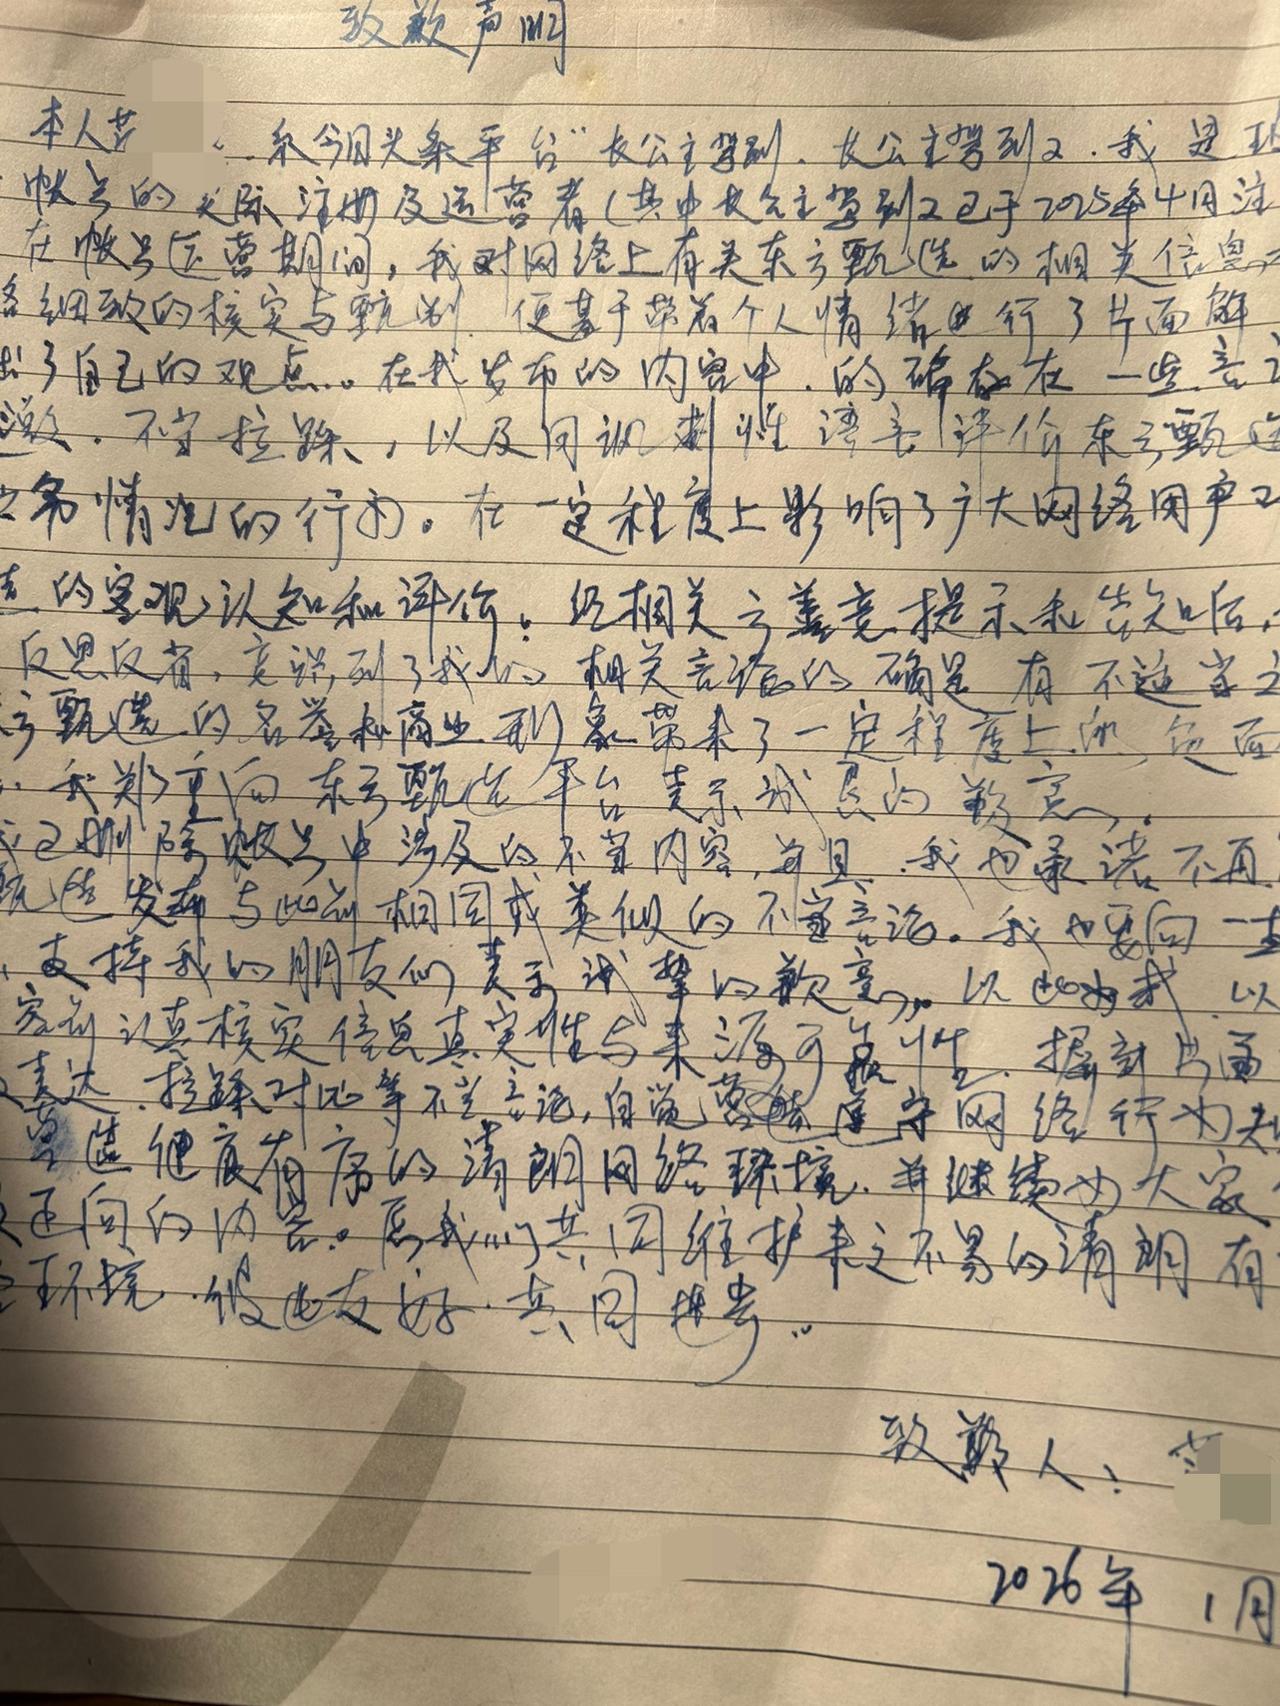 致歉声明
本人苦 系今日头条平台"长公主驾到、长公主驾到2.我是
帐号的实际注册及运营者(其中长公主驾到2已于2025年4月注
在帐号运营期间,我对网络上有关东方甄选的相关信息
细致的核实与甄别 便基于带着个人情绪进行了片面解
出了自己的观点。在我发布的内容中、的确存在一些言
激、不当拉踩,以及用讽刺性语言评价东方甄选
务情况的行为。在一定程度上影响了广大网络用户
选的客观认知和评价。经相关方善意提示和告知后,
反思反省,意识到了我的相关言论的确是有不适当之
方甄选的名誉和商业形象带来了一定程度上的负面
我郑重向东方甄选平台表示诚恳的歉意。
我已删除帐号中涉及的不当内容,并且、我也承诺不再
甄选发布与此前相同或类似的不当言论。我也要向一直
支持我的朋友们表示诚挚的歉意。以此为我、以
容前认真核实信息真实性与来源可靠性、摒弃片面
表达、拉踩对比等不当言论,自觉遵守网络行为规
营造健康有序的清朗网络环境、并继续为大家
正向的内容。愿我们共同维护来之不易的清朗有
环境、彼此友好、共同进步。
致歉人:苦
2026年1月